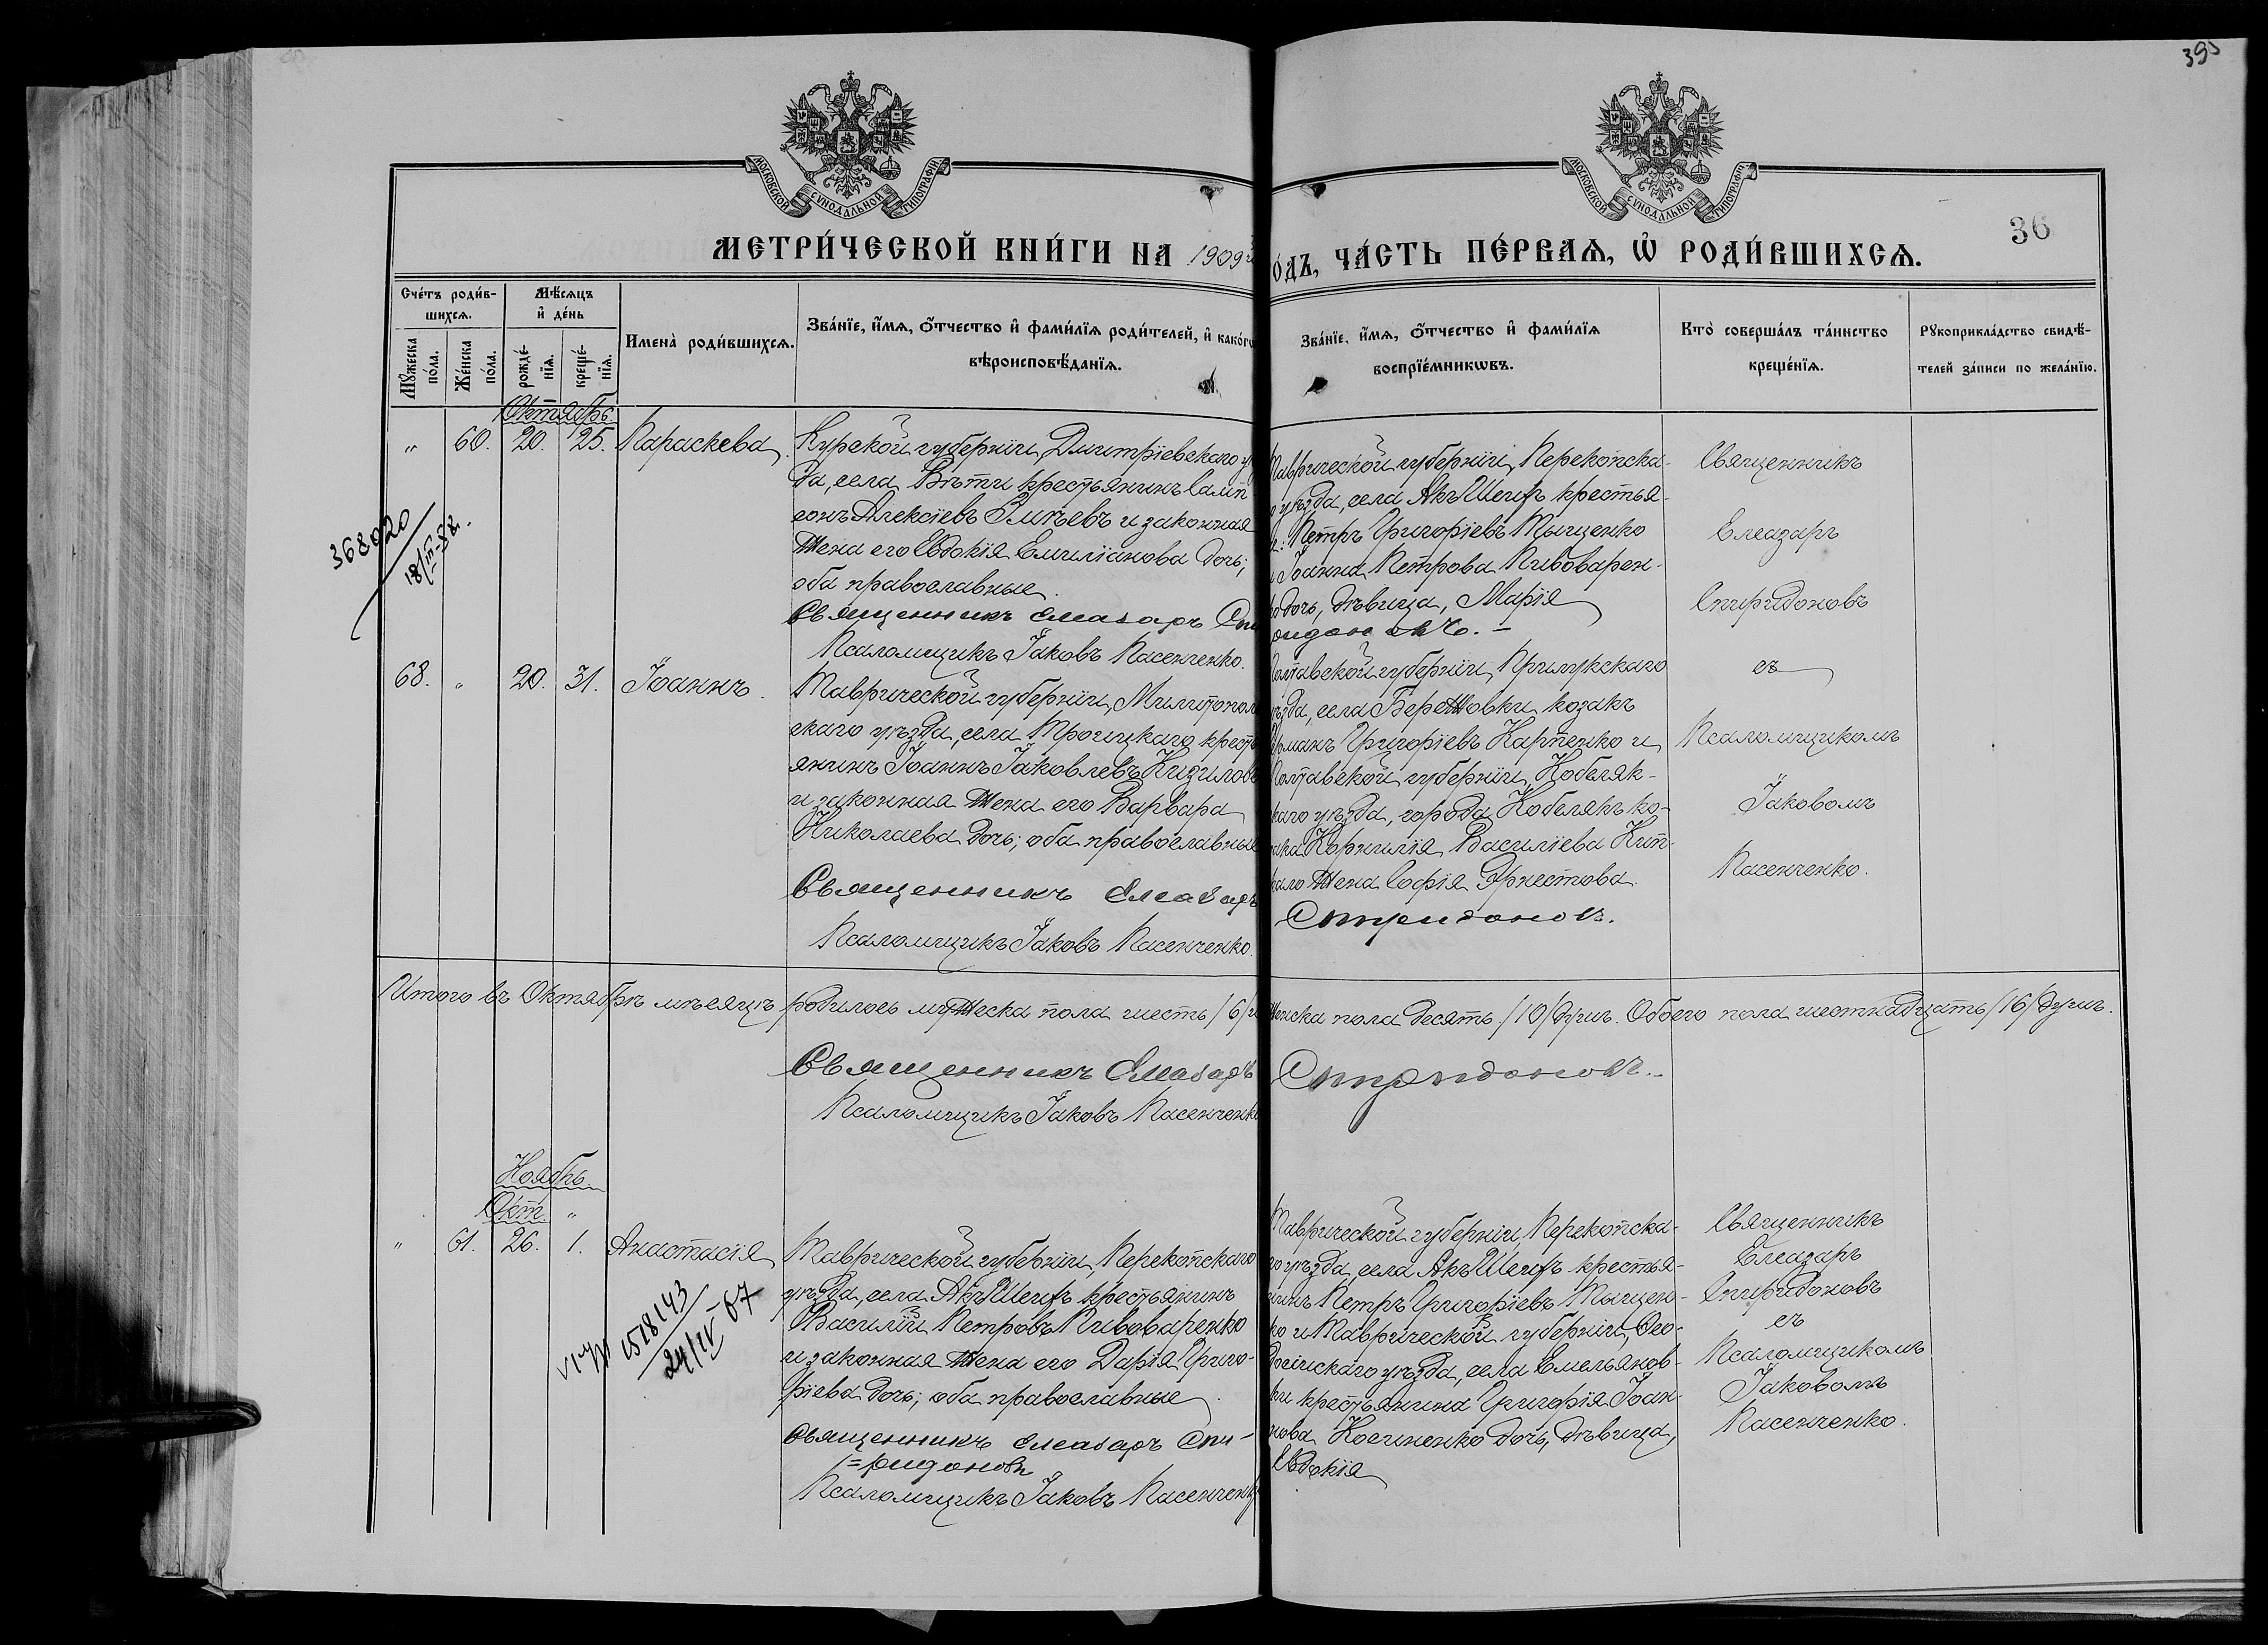 395
МОСКОВСКОЙ СѴНОДАЛЬНОЙ ТИПОГРАФІИ
МОСКОВСКОЙ СѴНОДАЛЬНОЙ ТИПОГРАФІИ
36
МЕТРИ́ЧЕСКОЙ КНИ́ГИ НА 1909
о́дъ, ЧА́СТЬ ПЕ́РВАѦ, Ѡ҆ РОДИ́ВШИХСѦ.
Сче́тъ роди́в-
шихсѧ.
Мꙋ́жеска
по́ла.
Же́нска
по́ла.
Мѣ́сѧцъ
и҆ де́нь
рожде́-
нїѧ.
креще́-
нїѧ.
Имена̀ роди́вшихсѧ.
Зва́нїе, и҆́мѧ, ѻ҆́тчество и҆ фами́лїѧ роди́телей, и҆ како́гѡ
вѣроисповѣ́данїѧ.
Зва́нїе, и҆́мѧ, ѻ҆́тчество и҆ фами́лїѧ
воспрїе́мникѡвъ.
Кто̀ соверша́лъ та́инство
креще́нїѧ.
Рꙋкоприкла́дство свидѣ́-
телей за́писи по жела́нїю.
Октябрь.
" 60. 20. 25. Параскева
Курской губерніи, Дмитріевскаго у
да, села Вѣти крестьянинъ Самп
сонъ Алексіевъ Змѣевъ и законная
жена его Евдокія Емиліанова дочь;
оба православные.
Священникъ Елеазаръ Спи
Псаломщикъ Іаковъ Пасенченко.
Таврической губерніи, Перекопска-
о уѣзда, села Акъ Шеихъ крестья-
н: Петръ Григоріевъ Тыщенко
и Іоанна Петрова Пивоварен-
ко дочь, дѣвица, Марія
ридоновъ.-
Священникъ
Елеазаръ
Спиридоновъ
съ
Псаломщикомъ
Іаковомъ
Пасенченко.
368020
18/III-82.
68. " 20. 31. Іоаннъ.
Таврической губерніи, Милитополь
скаго уѣзда, села Троицкаго кресть
янинъ Іоаннъ Іаковлевъ Кизиловъ
и законная жена его Варвара
Николаева дочь; оба православные
Священникъ Елеазаръ
Псаломщикъ Іаковъ Пасенченко.
Полтавской губерніи, Прилукскаго
уѣзда, села Бережовки козакъ
Романъ Григоріевъ Карпенко и
Полтавской губерніи, Кобеляк-
скаго уѣзда, города Кобелякъ ко-
зака Корнилія Василіева Кип-
кало жена Софія Эрнестова.
Спиридоновъ.
Итого въ Октябрѣ мѣсяцѣ родилось мужеска пола шесть /6/ и
женска пола десять /10/ душъ. Обоего пола шестнадцать /16/ душъ.
Священникъ Елеазаръ
Спиридоновъ.
Псаломщикъ Іаковъ Пасенченко
Ноябрь.
Окт. "
" 61. 26. 1. Анастасія
Таврической губерніи, Перекопскаго
уѣзда, села Акъ Шеихъ крестьянинъ
Василій Петровъ Пивоваренко
и законная жена его Дарія Григо-
ріева дочь; оба православные
Священникъ Елеазаръ Спи-
=ридоновъ
Псаломщикъ Іаковъ Пасенченк
Таврической губерніи, Перекопска-
го уѣзда, села Акъ Шеихъ крестья-
нинъ Петръ Григоріевъ Тыщен-
ко и Таврической губерніи, Ѳео-
досійскаго уѣзда, села Емельянов-
ки крестьянина Григорія Іоан-
нова Косиненко дочь, дѣвица,
Евдокія
Священникъ
Елеазаръ
Спиридоновъ
съ
Псаломщикомъ
Іаковомъ
Пасенченко.
1518143
24/IV-67